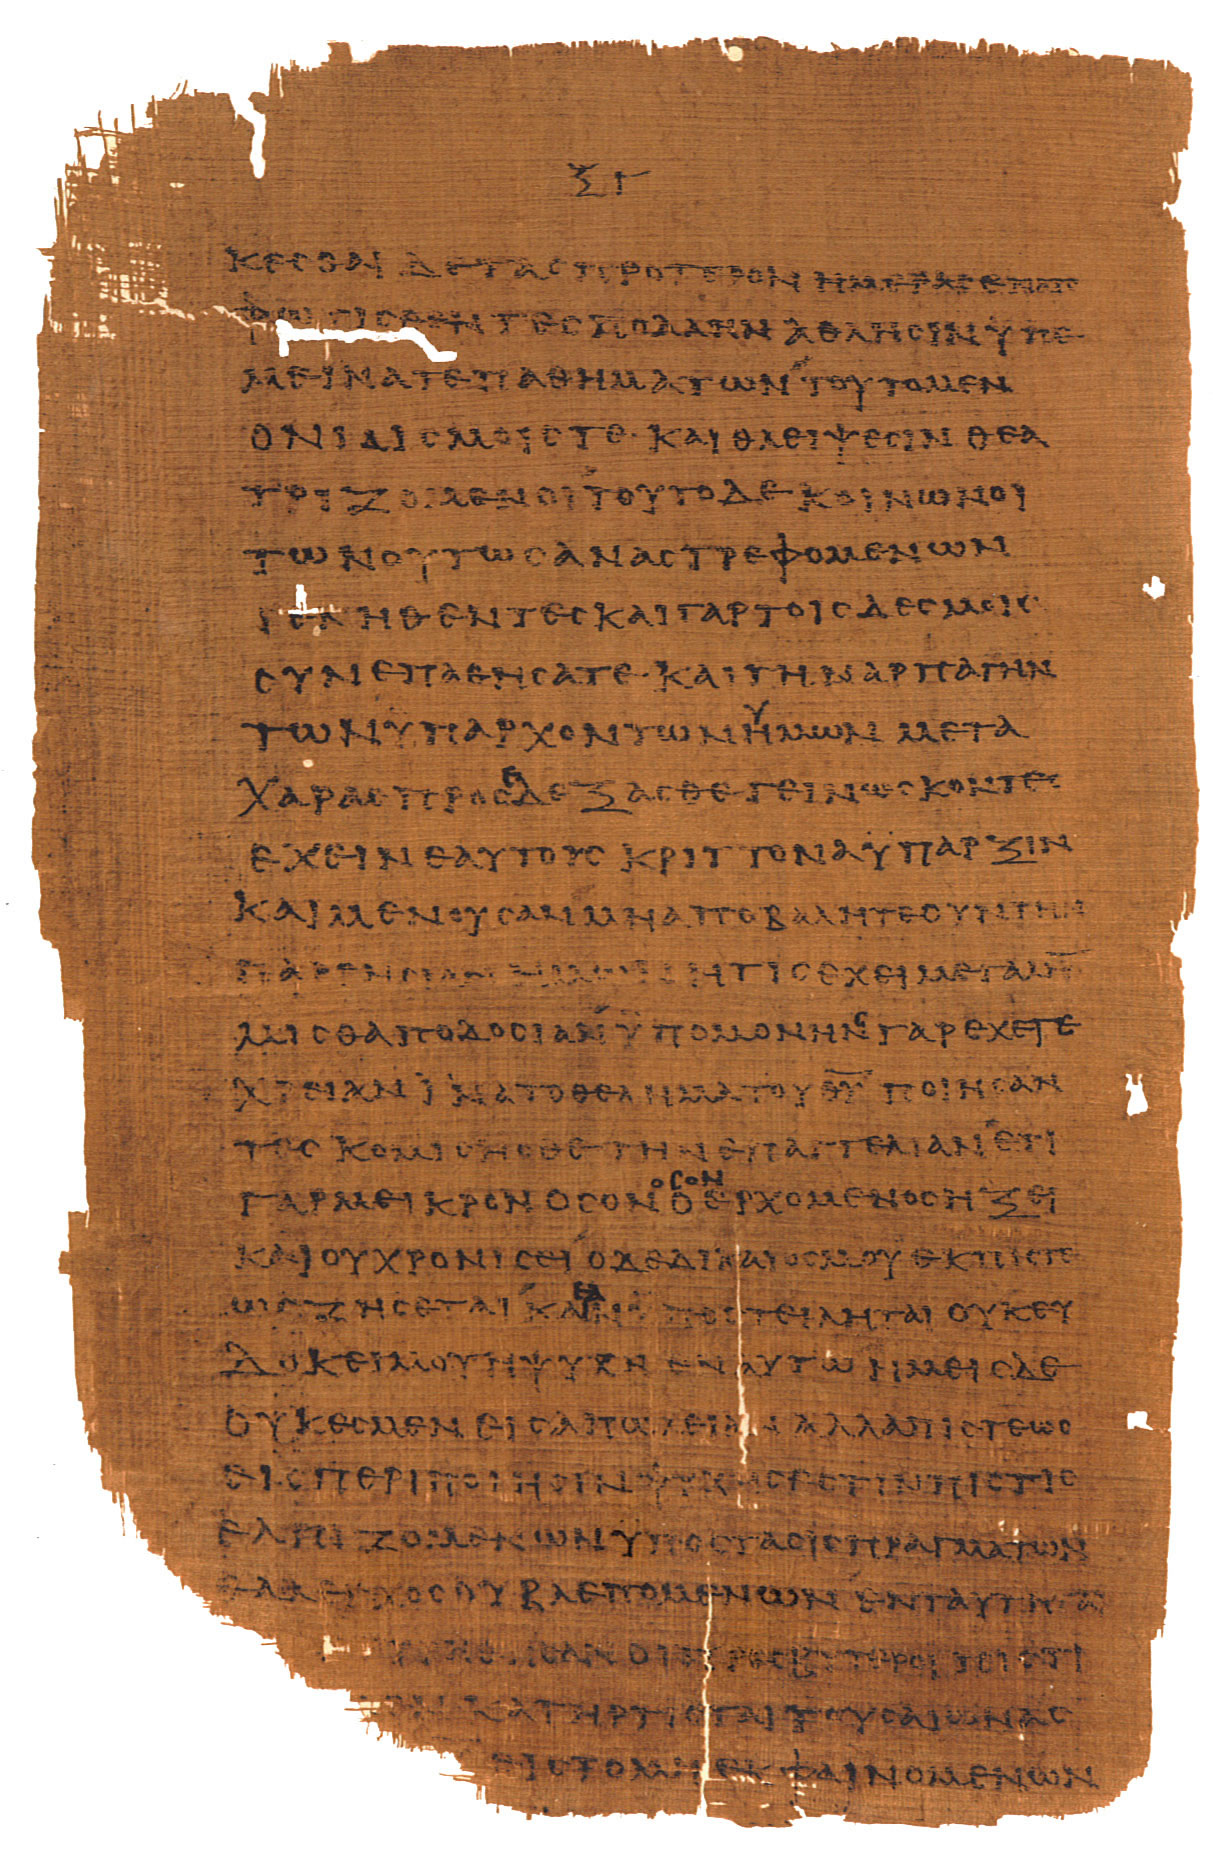 ΞΓ
ΚΕϹΘΑΙ ΔΕ ΤΑϹ ΠΡΟΤΕΡΟΝ ΗΜΕΡΑϹ ΕΝ ΑΙϹ
ΦΩΤΙϹΘΕΝΤΕϹ ΠΟΛΛΗΝ ΑΘΛΗϹΙΝ ΥΠΕ
ΜΕΙΝΑΤΕ ΠΑΘΗΜΑΤΩΝ ΤΟΥΤΟ ΜΕΝ
ΟΝΙΔΙϹΜΟΙϹ ΤΕ · ΚΑΙ ΘΛΕΙΨΕϹΙΝ ΘΕΑ
ΤΡΙΖΟΜΕΝΟΙ ΤΟΥΤΟ ΔΕ ΚΟΙΝΩΝΟΙ
ΤΩΝ ΟΥΤΩϹ ΑΝΑϹΤΡΕΦΟΜΕΝΩΝ
ΓΕΝΗΘΕΝΤΕϹ ΚΑΙ ΓΑΡ ΤΟΙϹ ΔΕϹΜΟΙϹ
ϹΥΝΕΠΑΘΗϹΑΤΕ · ΚΑΙ ΤΗΝ ΑΡΠΑΓΗΝ
ΤΩΝ ΫΠΑΡΧΟΝΤΩΝ ΥΗΜΩΝ ΜΕΤΑ
ΧΑΡΑϹ ΠΡΟϹΕΔΕΞΑϹΘΕ ΓΕΙΝΩϹΚΟΝΤΕϹ
ΕΧΕΙΝ ΕΑΥΤΟΥϹ ΚΡΙΤΤΟΝΑ ΫΠΑΡΞΙΝ
ΚΑΙ ΜΕΝΟΥϹΑΝ ΜΗ ΑΠΟΒΑΛΗΤΕ ΟΥΝ ΤΗΝ
ΗΤΙϹ ΕΧΕΙ ΜΕΓΑΛΗΝ
ΜΙϹΘΑΠΟΔΟϹΙΑΝ ΫΠΟΜΟΝΗΝϹ ΓΑΡ ΕΧΕΤΕ
ΧΡΕΙΑΝ ΪΝΑ ΤΟ ΘΕΛΗΜΑ ΤΟΥ Θ̅Υ̅ ΠΟΙΗϹΑΝ
ΤΕϹ ΚΟΜΙϹΗϹΘΕ ΤΗΝ ΕΠΑΓΓΕΛΙΑΝ ΕΤΙ
ΓΑΡ ΜΕΙΚΡΟΝ ΟϹΟΝ ΟϹΟΝ Ο ΕΡΧΟΜΕΝΟϹ ΗΞΕΙ
ΚΑΙ ΟΥ ΧΡΟΝΙϹΕΙ Ο ΔΕ ΔΙΚΑΙΟϹ ΜΟΥ ΕΚ ΠΙϹΤΕ
ΩϹ ΖΗϹΕΤΑΙ ΚΑΙ ΕΑΝ ΥΠΟϹΤΕΙΛΗΤΑΙ ΟΥΚ ΕΥ
ΔΟΚΕΙ ΜΟΥ Η ΨΥΧΗ ΕΝ ΑΥΤΩ ΗΜΕΙϹ ΔΕ
ΟΥΚ ΕϹΜΕΝ ΕΙϹ ΑΠΩΛΕΙΑΝ ΑΛΛΑ ΠΙϹΤΕΩϹ
ΕΙϹ ΠΕΡΙΠΟΙΗϹΙΝ ΨΥΧΗϹ ΕϹΤΙΝ ΠΙϹΤΙϹ
ΕΛΠΙΖΟΜΕΝΩΝ ΥΠΟϹΤΑϹΙϹ ΠΡΑΓΜΑΤΩΝ
ΕΛΕΓΧΟϹ ΟΥ ΒΛΕΠΟΜΕΝΩΝ ΕΝ ΤΑΥΤΗ
ΟΙ ΠΡΕϹΒΥΤΕΡΟΙ ΠΙϹΤΙ
ΚΑΤΗΡΤΙϹΤΑΙ ΤΟΥϹ ΑΙΩΝΑϹ
ΕΙϹ ΤΟ ΜΗ ΕΚ ΦΑΙΝΟΜΕΝΩΝ